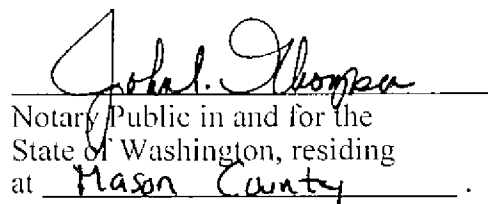 John I. Thompson
Notary Public in and for the
State of Washington, residing
at Mason County .